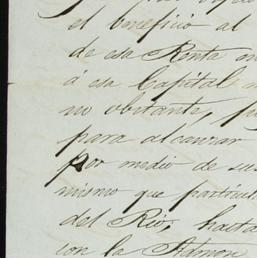 el beneficio al
de esa Renta
á esa Capital
no obstante,
para alcanzar
por medio de su
mismo que particul
del Rio, hasta
con la Admon